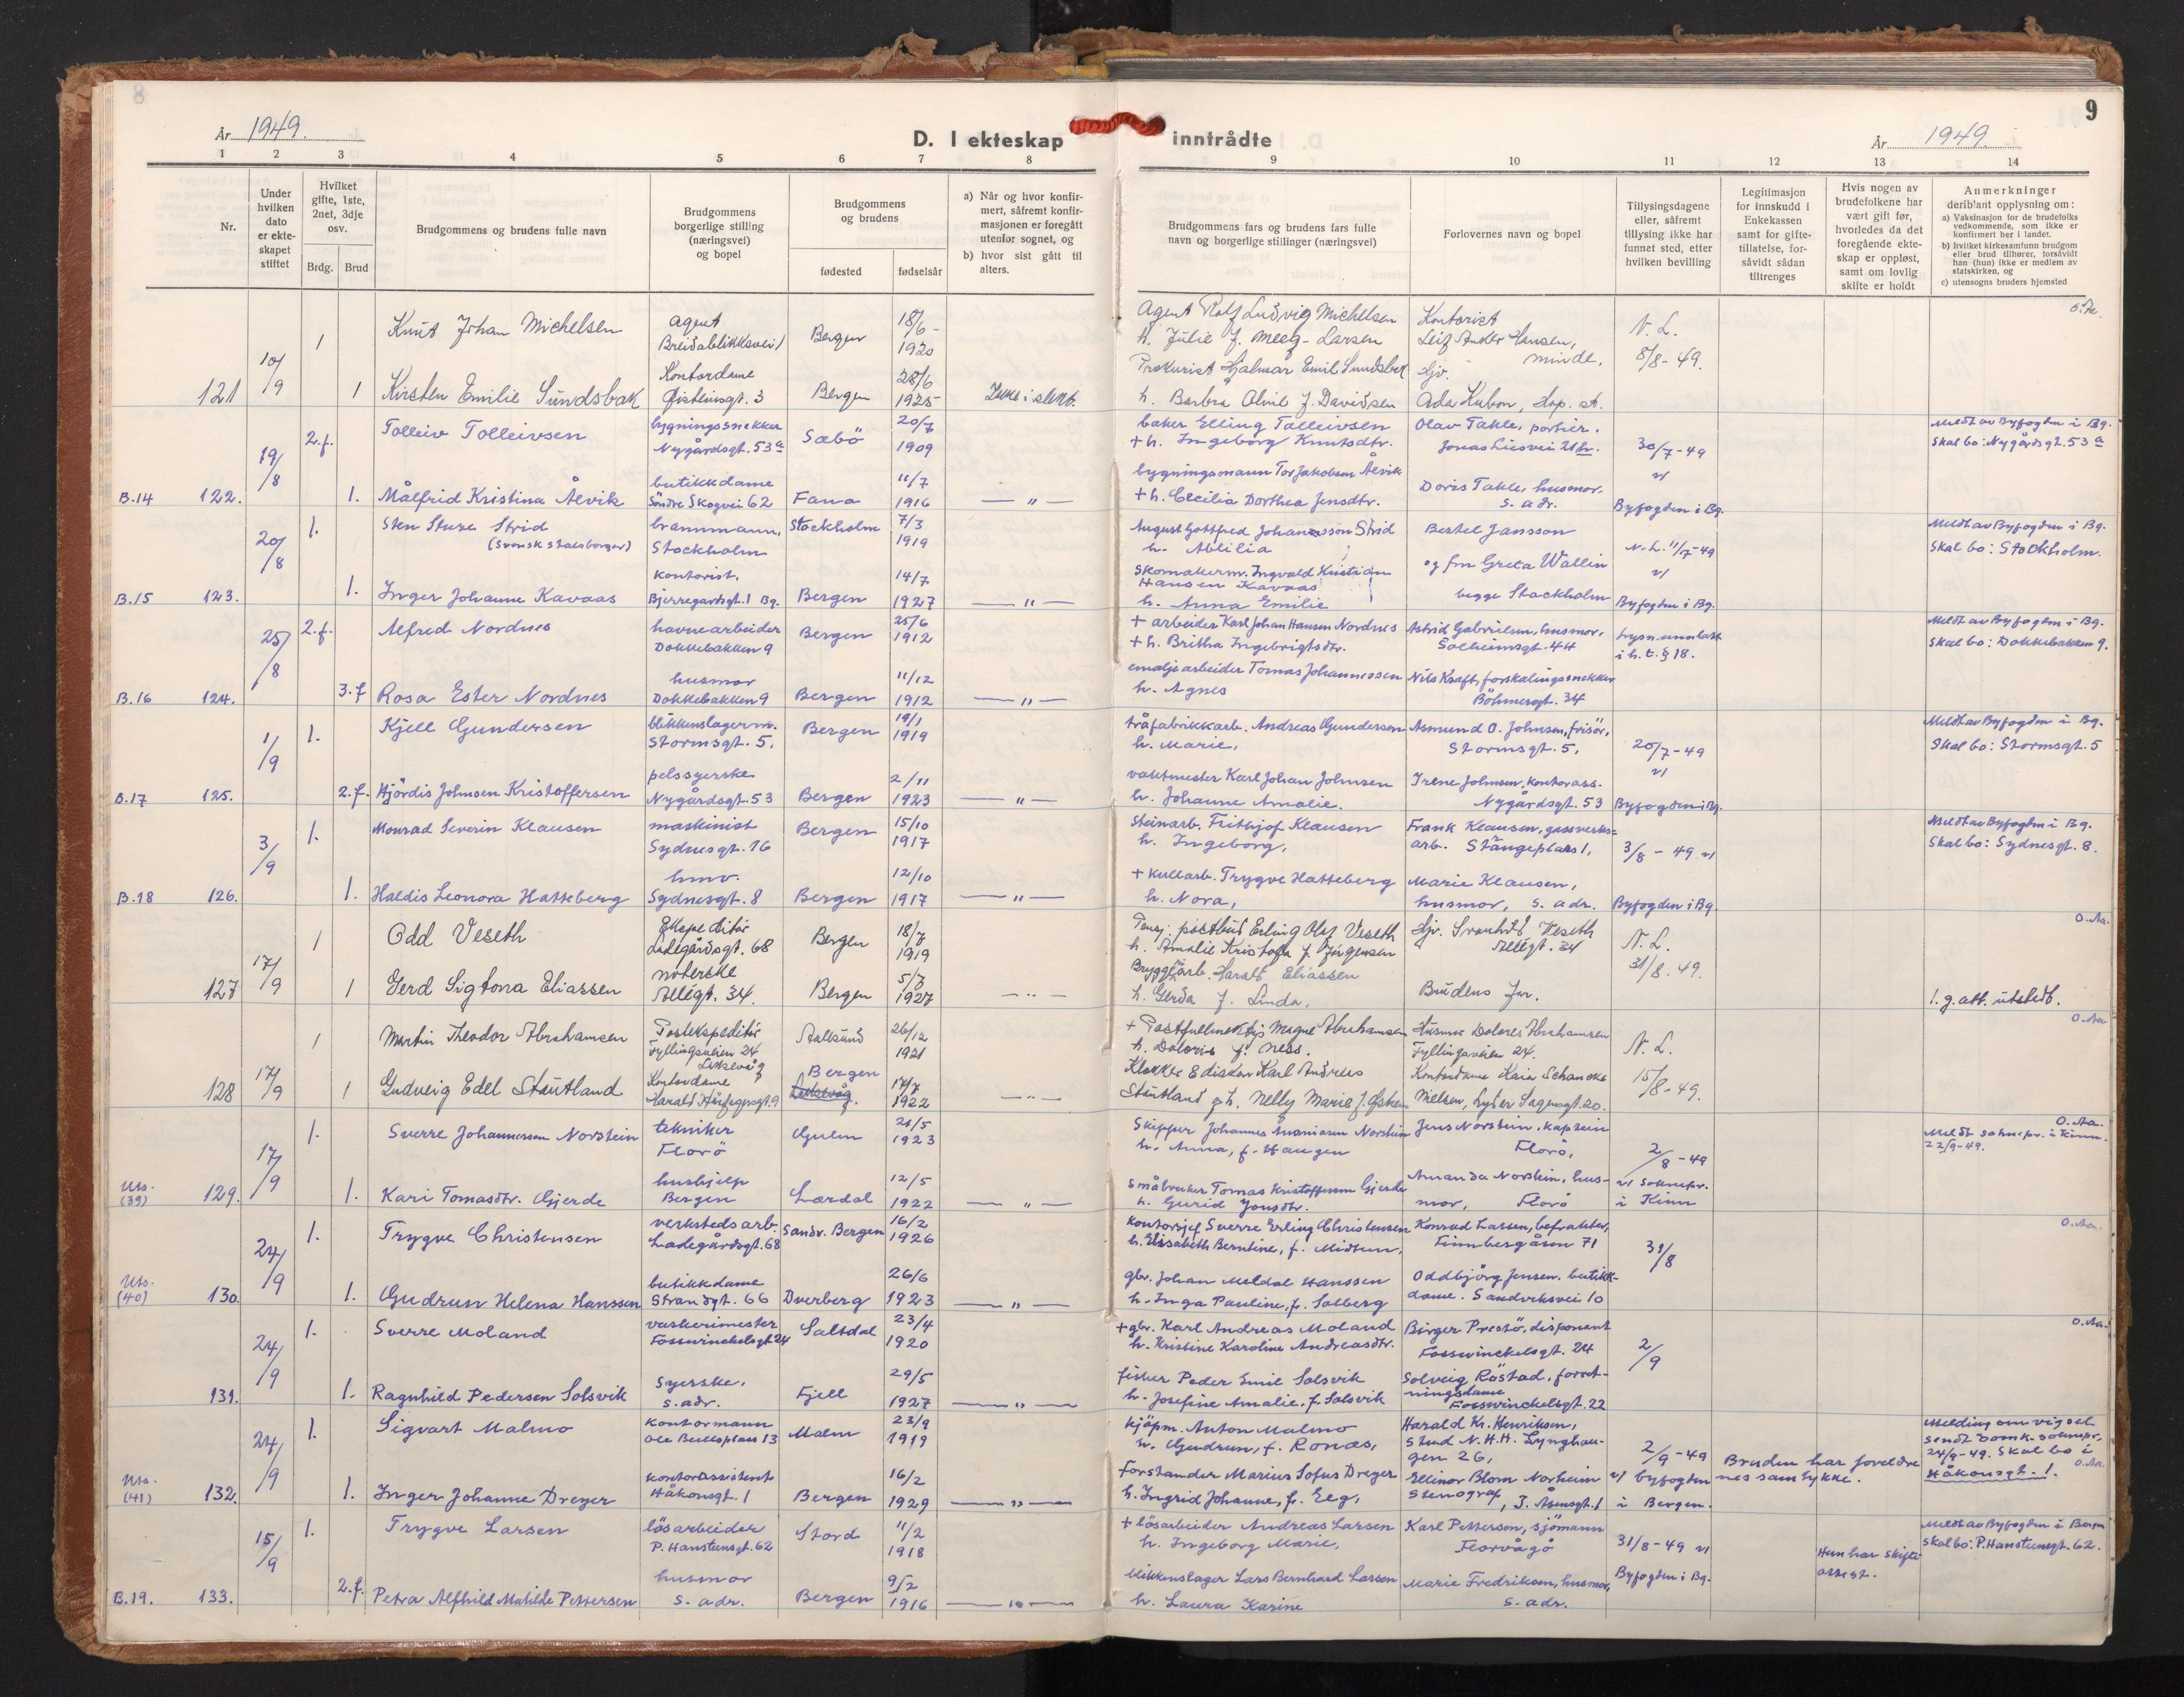 8
9
År 1949.
D. I ekteskap inntrådte
År 1949.
1 2 3 4 5 6 7 8 9 10 11 12 13 14
Nr.
Under hvilken dato er ekteskapet stiftet
Hvilket gifte, 1ste, 2net, 3dje osv.
Brdg. Brud
Brudgommens og brudens fulle navn
Brudgommens borgerlige stilling (næringsvei) og bopel
Brudgommens og brudens
fødested fødselsår
a) Når og hvor konfirmert, såfremt konfirmasjonen er foregått utenfor sognet, og
b) hvor sist gått til alters.
Brudgommens fars og brudens fars fulle navn og borgerlige stillinger (næringsvei)
Forlovernes navn og bopel
Tillysingsdagene eller, såfremt tillysing ikke har funnet sted, etter hvilken bevilling
Legitimasjon for innskudd i Enkekassen samt for giftetillatelse, forsåvidt sådan tiltrenges
Hvis nogen av brudefolkene har vært gift før, hvorledes da det foregående ekteskap er oppløst, samt om lovlig skifte er holdt
Anmerkninger deriblant opplysning om:
a) Vaksinasjon for de brudefolks vedkommende, som ikke er konfirmert her i landet.
b) hvilket kirkesamfunn brudgom eller brud tilhører, forsåvidt han (hun) ikke er medlem av statskirken, og
c) utensogns bruders hjemsted
121 10/9 1 Knut Johan Michelsen agent Breidablikksvei 1 Bergen 18/6 - 1920
Agent Rolf Ludvig Michelsen h. Julie f. Meeg-Larsen Kontorist Leif Ander Hansen, Minde. N. L. 8/8 - 49.
1 Kirsten Emilie Sundsbak Kontordame Øisteinsgt. 3 Bergen 28/6 1925
Prokurist Hjalmar Emil Sundsbak h. Barbra Oline f. Davidsen Ada Kubon
B.14 122. 19/8 2.f. Tolleiv Tolleivsen bygningssnekker Nygårdsgt. 53a Sæbö 20/7 1909
baker Elling Tolleivsen + h. Ingeborg Knutsdtr. Olav Takle, portier. Jonas Liesvei 30/7 - 49 v/
Meldt av Byfogden i Bg. Skal bo: Nygårdsgt. 53 a
1. Målfrid Kristina Ålvik butikkdame Söndre Skogvei 62 Fana 11/7 1916 — " —
bygningsmann Tor Jakobsen Ålvik + h. Cecilia Dorthea Jensdtr. Doris Takle, husmor. s. adr. Byfogden i Bg.
B.15 123. 20/8 1. Sten Sture Strid (Svensk statsborger) brannmann, Stockholm Stockholm 7/3 1919
August Gottfred Johansson Strid h. Ablilia Bertel Jansson N. L. 11/7 - 49 v/
Meldt av Byfogden i Bg. Skal bo: Stockholm.
1. Inger Johanne Kavaas kontorist. Bjerregardsgt. 1 Bg. Bergen 14/7 1927 — " —
Skomakerm. Ingvald Kristian Hansen Kavaas h. Anna Emilie og frn Greta Wallin begge Stockholm Byfogden i Bg.
B.16 124. 25/8 2.f. Alfred Nordnes havnearbeider Dokkebakken 9 Bergen 25/6 1912
+ arbeider Karl Johan Hansen Nordnes + h. Britha Ingebrigtsdtr. Astrid Gabrielsen, husmor, Solheimsgt. 44 lysn. unnlatt i h. t. § 18.
Meldt av Byfogden i Bg. Skal bo: Dokkebakken 9.
3.f Rosa Ester Nordnes husmor Dokkebakken 9 Bergen 11/12 1912 — " —
emaljearbeider Tomas Johannessen h. Agnes Nils Kraft, forskalingssnekker Böhmersgt. 34
B.17 125. 1/9 1. Kjell Gundersen blikkenslagerm. Stormsgt. 5. Bergen 19/1 1919
tråfabrikkarb. Andreas Gundersen h. Marie, Asmund O. Johnsen, frisör, Stormsgt. 5, 20/7 - 49 v/
Meldt av Byfogden i Bg. Skal bo: Stormsgt. 5
2.f. Hjördis Johnsen Kristoffersen pelssyerske Nygårdsgt. 53 Bergen 2/11 1923 — " —
vaktmester Karl Johan Johnsen h. Johanne Amalie. Irene Johnsen, kontorass. Nygårdsgt. 53 Byfogden i Bg.
B.18 126. 3/9 1. Monrad Severin Klausen maskinist Sydnesgt. 16 Bergen 15/10 1917
Steinarb. Frithjof Klausen h. Ingeborg, Frank Klausen, gassverks= arb. Stångeplass 1, 3/8 - 49 v/
Meldt av Byfogden i Bg. Skal bo: Sydnesgt. 8.
1. Haldis Leonora Hatteberg hmv. Sydnesgt. 8 Bergen 12/10 1917 — " —
+ kullarb. Trygve Hatteberg h. Nora, Marie Klausen, husmor, s. adr. Byfogden i Bg.
127 17/9 1 Odd Veseth Ekspeditör Ladegårdsgt. 68 Bergen 18/7 1919
Pensj. postbud Erling Olaf Veseth h. Amalie Kristofa f. Jörgensen Hjv. Svanhild Veseth Allégt. 34 N. L. 31/8. 49. O. Aa.
1 Gerd Sigtona Eliassen Allégt. 34. Bergen 5/7 1927 — " —
Bryggearb. Harald Eliassen h. Gerda f. Linda. Brudens far. 1. g. att. utstedt.
128 17/9 1 Martin Theodor Abrahamsen Postekspeditör Fyllingsveien 24 Laksevåg Aalesund 26/12 1921
+ Postfullmektig Magne Abrahamsen h. Doloris f. Ness. Husmor Dolores Abrahamsen Fyllingsveien 24. N. L. 15/8 - 49. O. Aa
1 Gudveig Edel Stautland Kontordame Harald Hårfagresgt. 9 Bergen Laksevåg. 17/7 1922 — " —
Klokker Edison Karl Andreas Stautland og h. Nelly Marie Kontordame Kaia Schancke Nielsen, Lyder Sagensgt. 20.
Uts. (39) 129. 17/9 1. Sverre Johannessen Norstein tekniker Florö Gulen 21/5 1923
Skipper Johannes Ananiasen Norstein h. Anna, f. Haugen Jens Norstein, kaptein Florö, 2/8 - 49 v/ soknepr. i Kinn
O. Aa. Meldt soknepr. i Kinn. 22/9 - 49.
1. Kari Tomasdtr. Gjerde hushjelp Bergen Lærdal 12/5 1922 — " —
Småbruker Tomas Kristoffersen Gjerde h. Gurid Jonsdtr. Amanda Norstein, husmor, Florö
Uts. (40) 130. 24/9 1. Trygve Christensen verkstedsarb. Ladegårdsgt. 68 Sandv. Bergen 16/2 1926
Kontorsjef Sverre Erling Christensen h. Elisabeth Berntine, f. Midtun, Konrad Larsen, befrakter, Finnbergåsen 71 31/8 O. Aa.
1. Gudrun Helena Hanssen butikkdame Strandgt. 66 Dverberg 26/6 1923 — " —
gbr. Johan Meldal Hanssen h. Inga Pauline, f. Solberg Oddbjörg Jensen. butikk- dame. Sandviksvei 10
131. 24/9 1. Sverre Moland vaskerimester Fosswinckelsgt. 24 Saltdal 23/4 1920
+ gbr. Karl Andreas Moland h. Kristine Karoline Andreasdtr. Birger Prestö, disponent Fosswinckelsgt. 24 2/9 O. Aa.
1. Ragnhild Pedersen Solsvik Syerske. s. adr. Fjell 29/5 1927 — " —
fisker Peder Emil Solsvik h. Josefine Amalie, f. Solsvik Solveig Röstad, forret- ningsdame Fosswinckelsgt. 22
Uts. (41) 132. 24/9 1. Sigvart Malmo Kontormann Ole Bullsplass 13 Malm 23/9 1919
kjöpm. Anton Malmo h. Gudrun, f. Ronæs, Harald Kr. Henriksen, Stud N. H. H. Lynghau- gen 26, 2/9 - 49 v/ byfogden i Bergen. Bruden har foreldre nes samtykke.
Melding om vigsel sendt Domk. soknepr. 24/9 - 49. Skal bo i Håkonsgt. 1. O. Aa.
1. Inger Johanne Dreyer kontorassistent Håkonsgt. 1 Bergen 16/2 1929 — " —
Forstander Marius Sofus Dreyer h. Ingrid Johanne, f. Eeg, Ellinor Blom Norheim Stenograf, I. Åsensgt. 1
B.19. 133. 15/9 1. Trygve Larsen lösarbeider P. Hanstensgt. 62 Stord 11/2 1918
+ lösarbeider Andreas Larsen h. Ingeborg Marie, Karl Pettersen, sjömann Florvågö 31/8 - 49 v/ Byfogden i Bg. Hun har skifte attest.
Meldt av Byfogden i Bergen Skal bo: P. Hansteensgt. 62.
2.f. Petra Alfhild Matilde Pettersen husmor s. adr. Bergen 9/2 1916 — " —
blikkenslager Lars Bernhard Larsen h. Laura Karine Marie Fredriksen, husmor, s. adr.